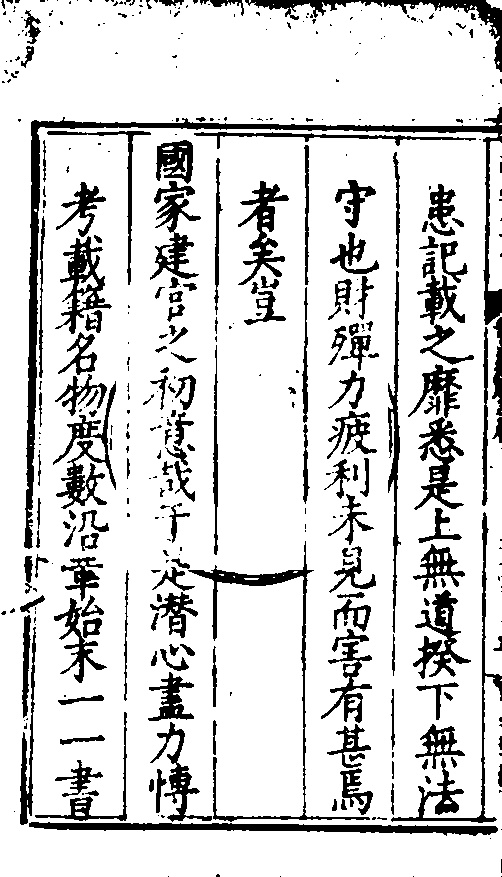 患記載之靡悉是上無道揆下無法
守也財殫力疲利未見而害有甚焉
者矣豈
國家建官之初意哉于是潛心盡力博
考載籍名物度數沿革始末一一書